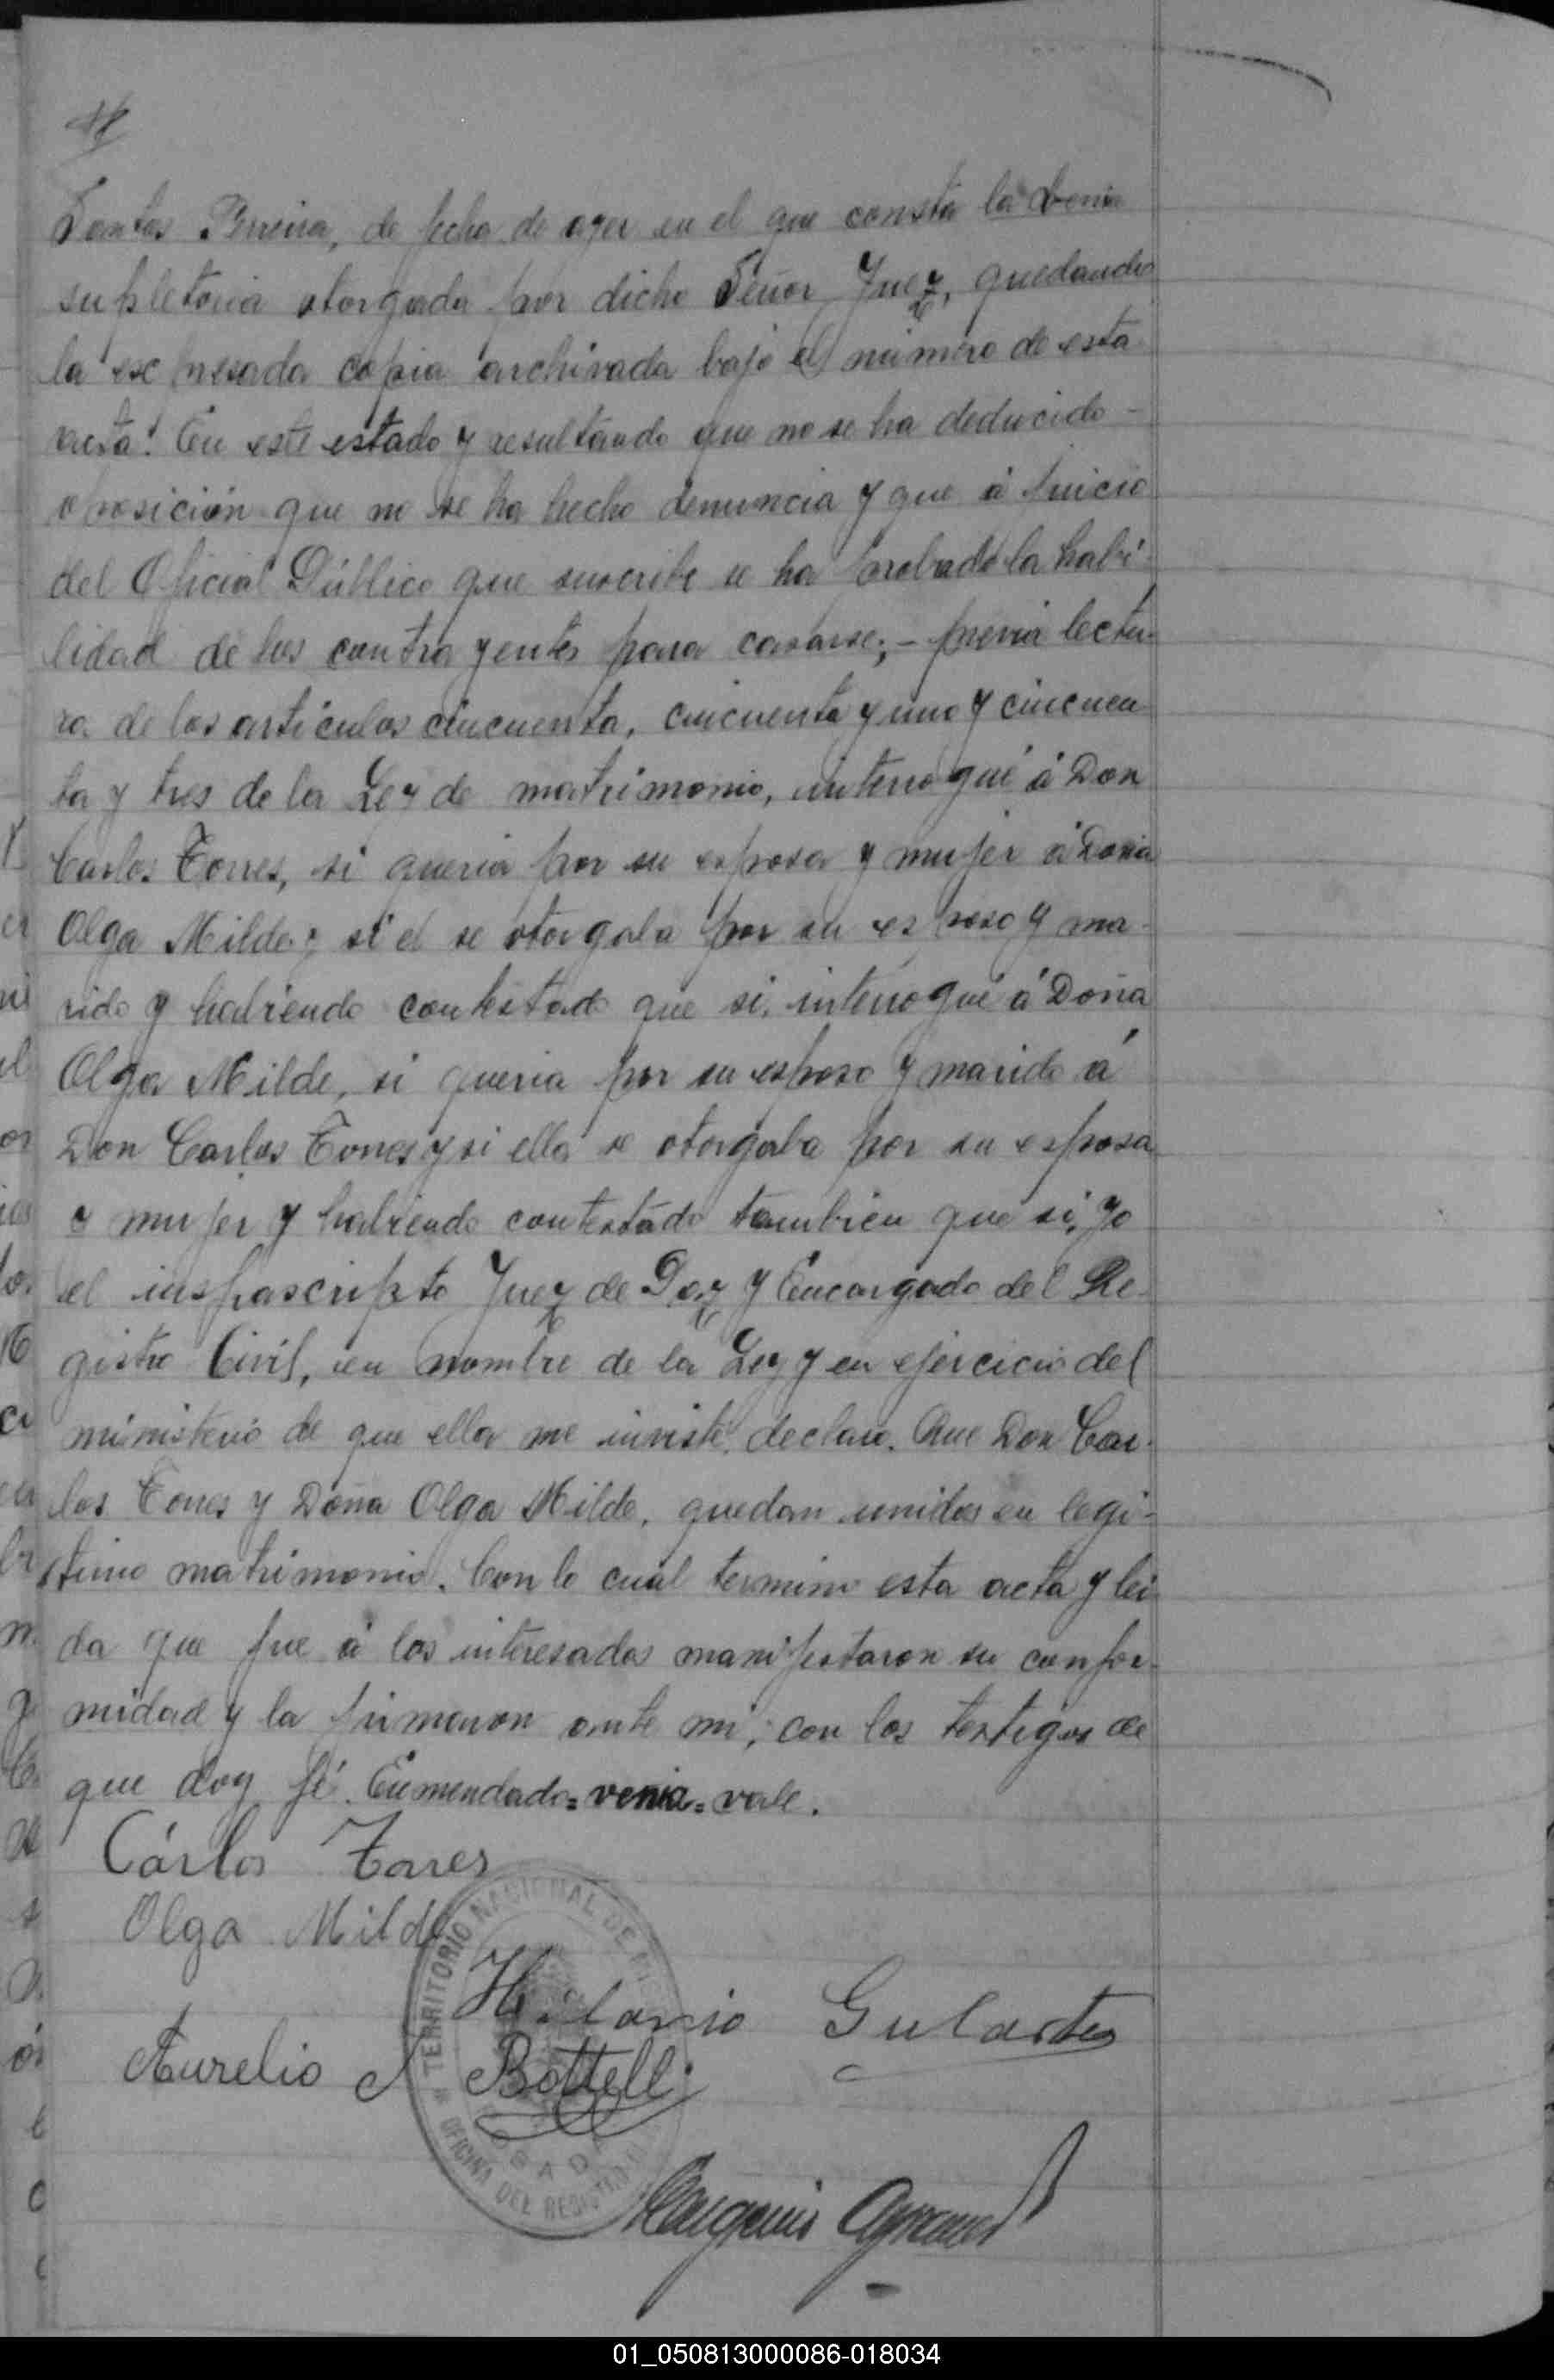 Santos Pereira, de fecha de ayer en el que consta la venia
supletoria otorgada por dicho Señor Juez, quedando
la expresada copia archivada bajo el número de esta
acta. En este estado y resultando que no se ha deducido -
oposición que no se ha hecho denuncia y que á juicio
del Oficial Público que suscribe se ha probado la habi-
lidad de los contrayentes para casarse; - previa lectu-
ra de los articulos cincuenta, cincuenta y uno y cincuen
ta y tres de la Ley de matrimonio, interrogué á Don
Carlos Torres, si queria por su esposa y mujer á Doña
Olga Milde y si el se otorgaba por su esposo y ma-
rido y habiendo contestado que si, interrogué á Doña
Olga Milde, si queria por su esposo y marido á
Don Carlos Torres y si ella se otorgaba por su esposa
y mujer y habiendo contestado tambien que si, yo
el infrascripto Juez de Paz y Encargado del Re-
gistro Civil, en nombre de la Ley y en ejercicio del
ministerio de que ella me inviste, declaro. Que Don Car-
los Torres y Doña Olga Milde, quedan unidos en legi-
timo matrimonio. Con lo cual termino esta acta y lei
da que fue á los interesados manifestaron su confor-
midad y la firmaron ante mi, con los testigos de
que doy fé. Enmendado=venia=vale.
Cárlos Torres
Olga Milde
TERRITORIO NACIONAL DE
Hilario Gularte
Aurelio J Bottelli
OFICINA DEL REGISTRO
01_050813000086-018034